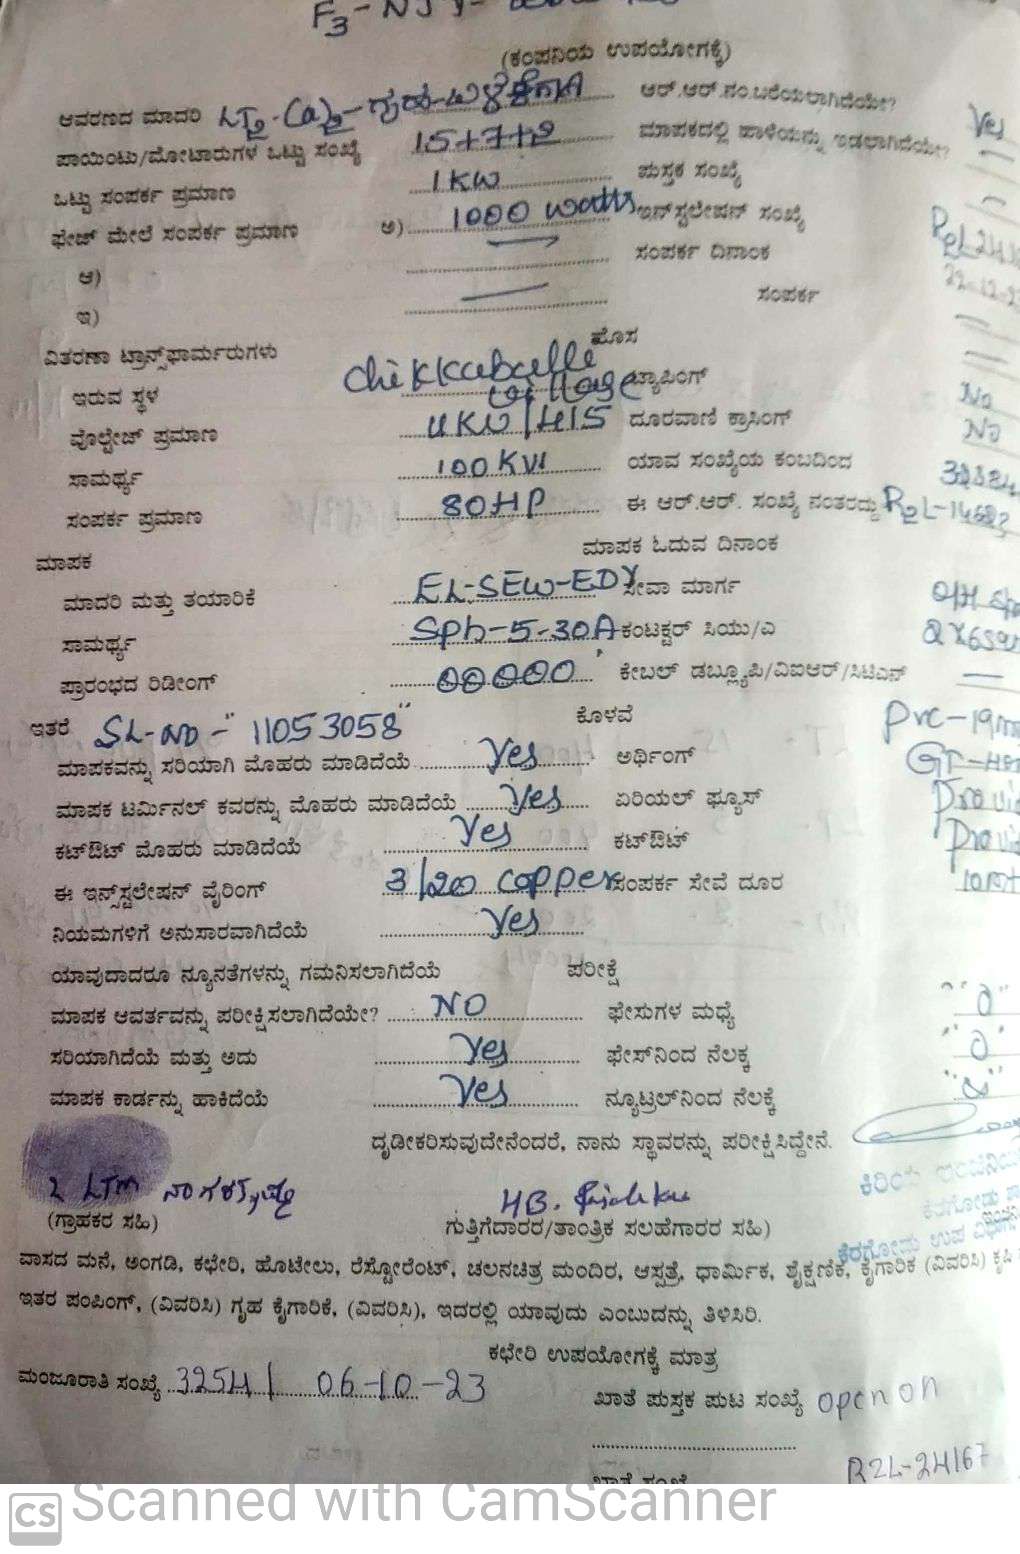 (ಕಂಪನಿಯ ಉಪಯೋಗಕ್ಕೆ)
ಆವರಣದ ಮಾದರಿ LT2-(a)2-ಗೃಹ ಆರ್.ಆರ್.ನಂ.ಬರೆಯಲಾಗಿದೆಯೇ? Yes
ಪಾಯಿಂಟು/ಮೋಟಾರುಗಳ ಒಟ್ಟು ಸಂಖ್ಯೆ 15+7+2 ಮಾಪಕದಲ್ಲಿ ಹಾಳೆಯನ್ನು ಇಡಲಾಗಿದೆಯೇ?
ಒಟ್ಟು ಸಂಪರ್ಕ ಪ್ರಮಾಣ 1KW ಪುಸ್ತಕ ಸಂಖ್ಯೆ
ಫೇಜ್ ಮೇಲೆ ಸಂಪರ್ಕ ಪ್ರಮಾಣ ಅ) 1000 watts ಇನ್‌ಸ್ಟಲೇಷನ್ ಸಂಖ್ಯೆ
ಆ) ಸಂಪರ್ಕ ದಿನಾಂಕ
ಇ) ಸಂಪರ್ಕ
ವಿತರಣಾ ಟ್ರಾನ್ಸ್‌ಫಾರ್ಮರುಗಳು ಹೊಸ
ಇರುವ ಸ್ಥಳ Chikkaballi village ಟ್ಯಾಪಿಂಗ್ No
ವೊಲ್ಟೇಜ್ ಪ್ರಮಾಣ 11KW/415 ದೂರವಾಣಿ ಕ್ರಾಸಿಂಗ್ No
ಸಾಮರ್ಥ್ಯ 100KVI ಯಾವ ಸಂಖ್ಯೆಯ ಕಂಬದಿಂದ
ಸಂಪರ್ಕ ಪ್ರಮಾಣ 80HP ಈ ಆರ್.ಆರ್. ಸಂಖ್ಯೆ ನಂತರದ್ದು
ಮಾಪಕ ಮಾಪಕ ಓದುವ ದಿನಾಂಕ
ಮಾದರಿ ಮತ್ತು ತಯಾರಿಕೆ EL-SEW-EDY ಸೇವಾ ಮಾರ್ಗ
ಸಾಮರ್ಥ್ಯ Sph-5-30A ಕಂಟಕ್ಟರ್ ಸಿಯು/ಎ
ಪ್ರಾರಂಭದ ರಿಡೀಂಗ್ 00000 ಕೇಬಲ್ ಡಬ್ಲ್ಯೂಪಿ/ವಿಐಆರ್/ಸಿಟಿಎಸ್
ಇತರೆ SL-NO-"11053058" ಕೊಳವೆ Pvc-19m
ಮಾಪಕವನ್ನು ಸರಿಯಾಗಿ ಮೊಹರು ಮಾಡಿದೆಯೆ Yes ಅರ್ಥಿಂಗ್
ಮಾಪಕ ಟರ್ಮಿನಲ್ ಕವರನ್ನು ಮೊಹರು ಮಾಡಿದೆಯೆ Yes ಏರಿಯಲ್ ಫ್ಯೂಸ್ Provi
ಕಟ್‌ಔಟ್ ಮೊಹರು ಮಾಡಿದೆಯೆ Yes ಕಟ್‌ಔಟ್ Provi
ಈ ಇನ್ಸ್‌ಸ್ಟಲೇಷನ್ ವೈರಿಂಗ್ 3/20 copper ಸಂಪರ್ಕ ಸೇವೆ ದೂರ
ನಿಯಮಗಳಿಗೆ ಅನುಸಾರವಾಗಿದೆಯೆ Yes
ಯಾವುದಾದರೂ ನ್ಯೂನತೆಗಳನ್ನು ಗಮನಿಸಲಾಗಿದೆಯೆ ಪರೀಕ್ಷೆ
ಮಾಪಕ ಆವರ್ತವನ್ನು ಪರೀಕ್ಷಿಸಲಾಗಿದೆಯೇ? NO ಫೇಸುಗಳ ಮಧ್ಯೆ "0"
ಸರಿಯಾಗಿದೆಯೆ ಮತ್ತು ಅದು Yes ಫೇಸ್‌ನಿಂದ ನೆಲಕ್ಕ "0"
ಮಾಪಕ ಕಾರ್ಡನ್ನು ಹಾಕಿದೆಯೆ Yes ನ್ಯೂಟ್ರಲ್‌ನಿಂದ ನೆಲಕ್ಕೆ
ದೃಢೀಕರಿಸುವುದೇನೆಂದರೆ, ನಾನು ಸ್ಥಾವರನ್ನು ಪರೀಕ್ಷಿಸಿದ್ದೇನೆ.
LTM HB.
(ಗ್ರಾಹಕರ ಸಹಿ) ಗುತ್ತಿಗೆದಾರರ/ತಾಂತ್ರಿಕ ಸಲಹೆಗಾರರ ಸಹಿ)
ವಾಸದ ಮನೆ, ಅಂಗಡಿ, ಕಛೇರಿ, ಹೊಟೇಲು, ರೆಸ್ಟೋರೆಂಟ್, ಚಲನಚಿತ್ರ ಮಂದಿರ, ಆಸ್ಪತ್ರೆ, ಧಾರ್ಮಿಕ, ಶೈಕ್ಷಣಿಕ, ಕೈಗಾರಿಕ (ವಿವರಿಸಿ) ಕೃಷಿ
ಇತರ ಪಂಪಿಂಗ್, (ವಿವರಿಸಿ) ಗೃಹ ಕೈಗಾರಿಕೆ, (ವಿವರಿಸಿ), ಇದರಲ್ಲಿ ಯಾವುದು ಎಂಬುದನ್ನು ತಿಳಿಸಿರಿ.
ಕಛೇರಿ ಉಪಯೋಗಕ್ಕೆ ಮಾತ್ರ
ಮಂಜೂರಾತಿ ಸಂಖ್ಯೆ 32541 06-10-23
ಖಾತೆ ಪುಸ್ತಕ ಪುಟ ಸಂಖ್ಯೆ open on
R2L-24167
CS Scanned with CamScanner